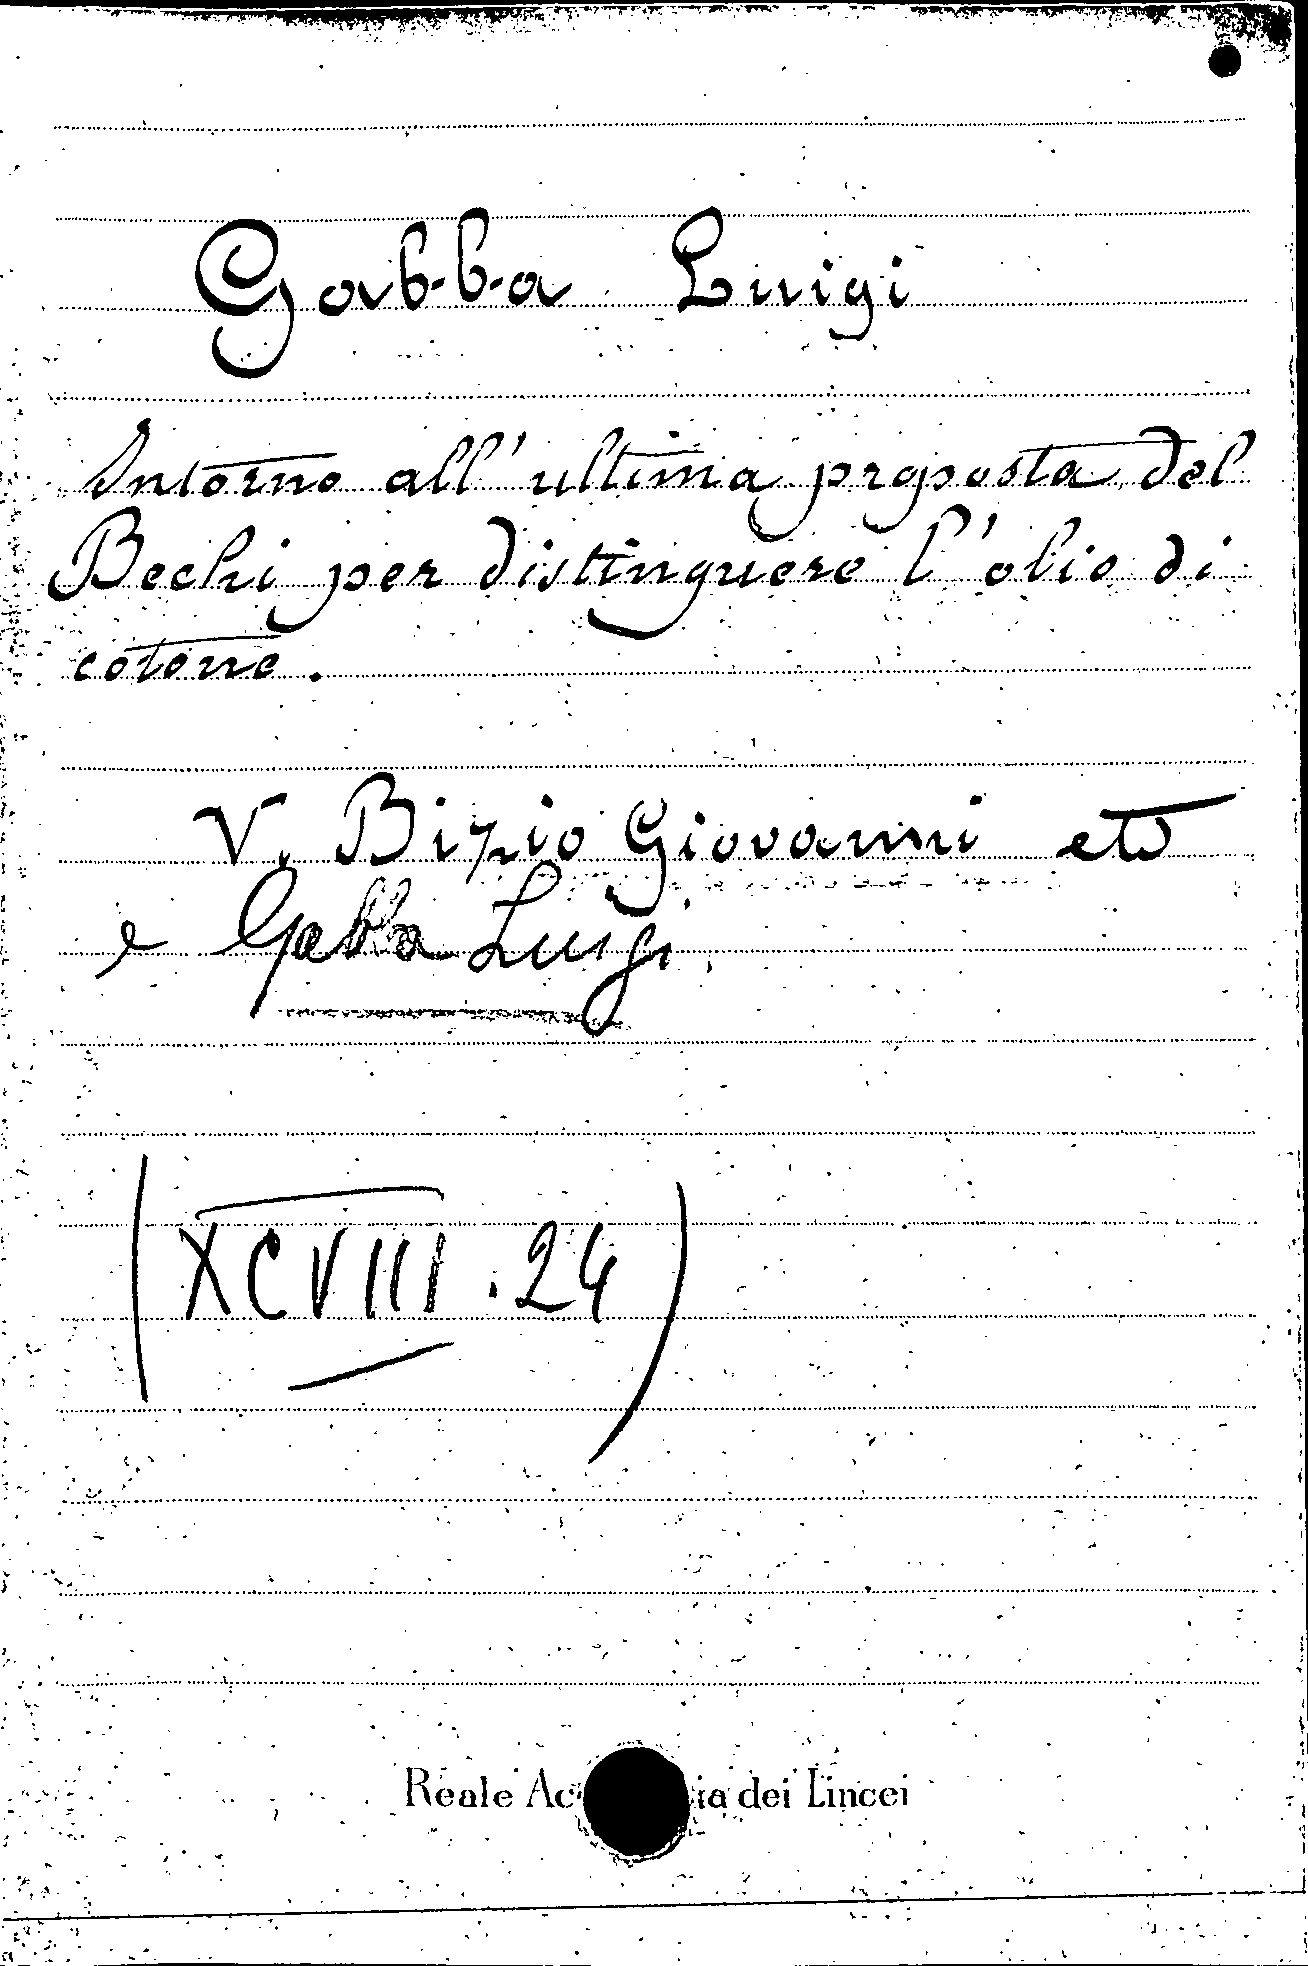 Gabba Luigi
Intorno all'ultima proposta del
Bechi per distinguere l'olio di
cotone.
V. Bizio Giovanni etc
e Gabba Luigi.
(XCVIII. 24)
Reale Ac ia dei Lincei